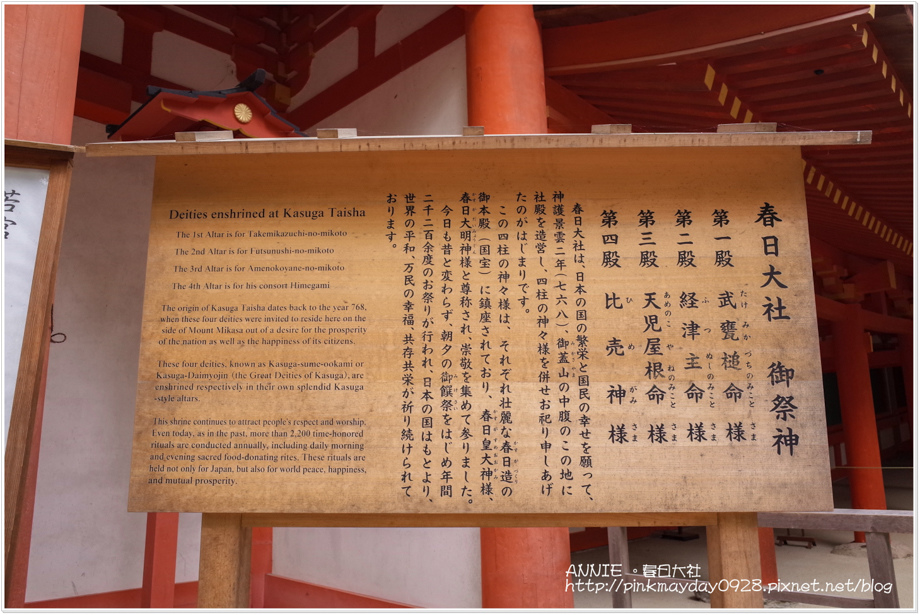 春日大社 御祭神
第一殿 武甕槌命様
たけ みか づちのみこと さま
第二殿 経津主命様
ふ つ ぬしのみこと さま
第三殿 天児屋根命様
あめのこ や ねのみこと さま
第四殿 比売神様
ひ め がみ さま
春日大社は、日本の国の繁栄と国民の幸せを願って、
神護景雲二年（七六八）、御蓋山の中腹のこの地に
社殿を造営し、四柱の神々様を併せお祀り申しあげ
たのがはじまりです。
この四柱の神々様は、それぞれ壮麗な春日造の
御本殿（国宝）に鎮座されており、春日皇大神様、
春日大明神様と尊称され崇敬を集めて参りました。
今日も昔と変わらず、朝夕の御饌祭をはじめ年間
二千二百余度のお祭りが行われ、日本の国はもとより、
世界の平和、万民の幸福、共存共栄が祈り続けられて
おります。
Deities enshrined at Kasuga Taisha
The 1st Altar is for Takemikazuchi-no-mikoto
The 2nd Altar is for Futsunushi-no-mikoto
The 3rd Altar is for Amenokoyane-no-mikoto
The 4th Altar is for his consort Himegami
The origin of Kasuga Taisha dates back to the year 768,
when these four deities were invited to reside here on the
side of Mount Mikasa out of a desire for the prosperity
of the nation as well as the happiness of its citizens.
These four deities, known as Kasuga-sume-ookami or
Kasuga-Daimyojin (the Great Deities of Kasuga), are
enshrined respectively in their own splendid Kasuga
-style altars.
This shrine continues to attract people's respect and worship.
Even today, as in the past, more than 2,200 time-honored
rituals are conducted annually, including daily morning
and evening sacred food-donating rites. These rituals are
held not only for Japan, but also for world peace, happiness,
and mutual prosperity.
若宮
ANNIE 。春日大社
http://pinkmayday0928.pixnet.net/blog